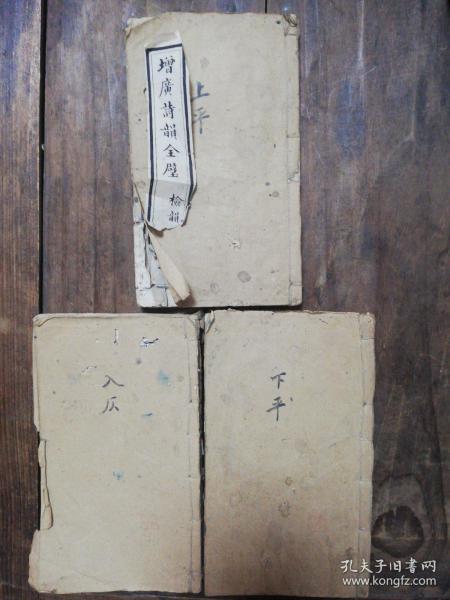 增廣詩韻全璧
檢韻
上平
入仄
下平
孔夫子旧书网
www.kongfz.com